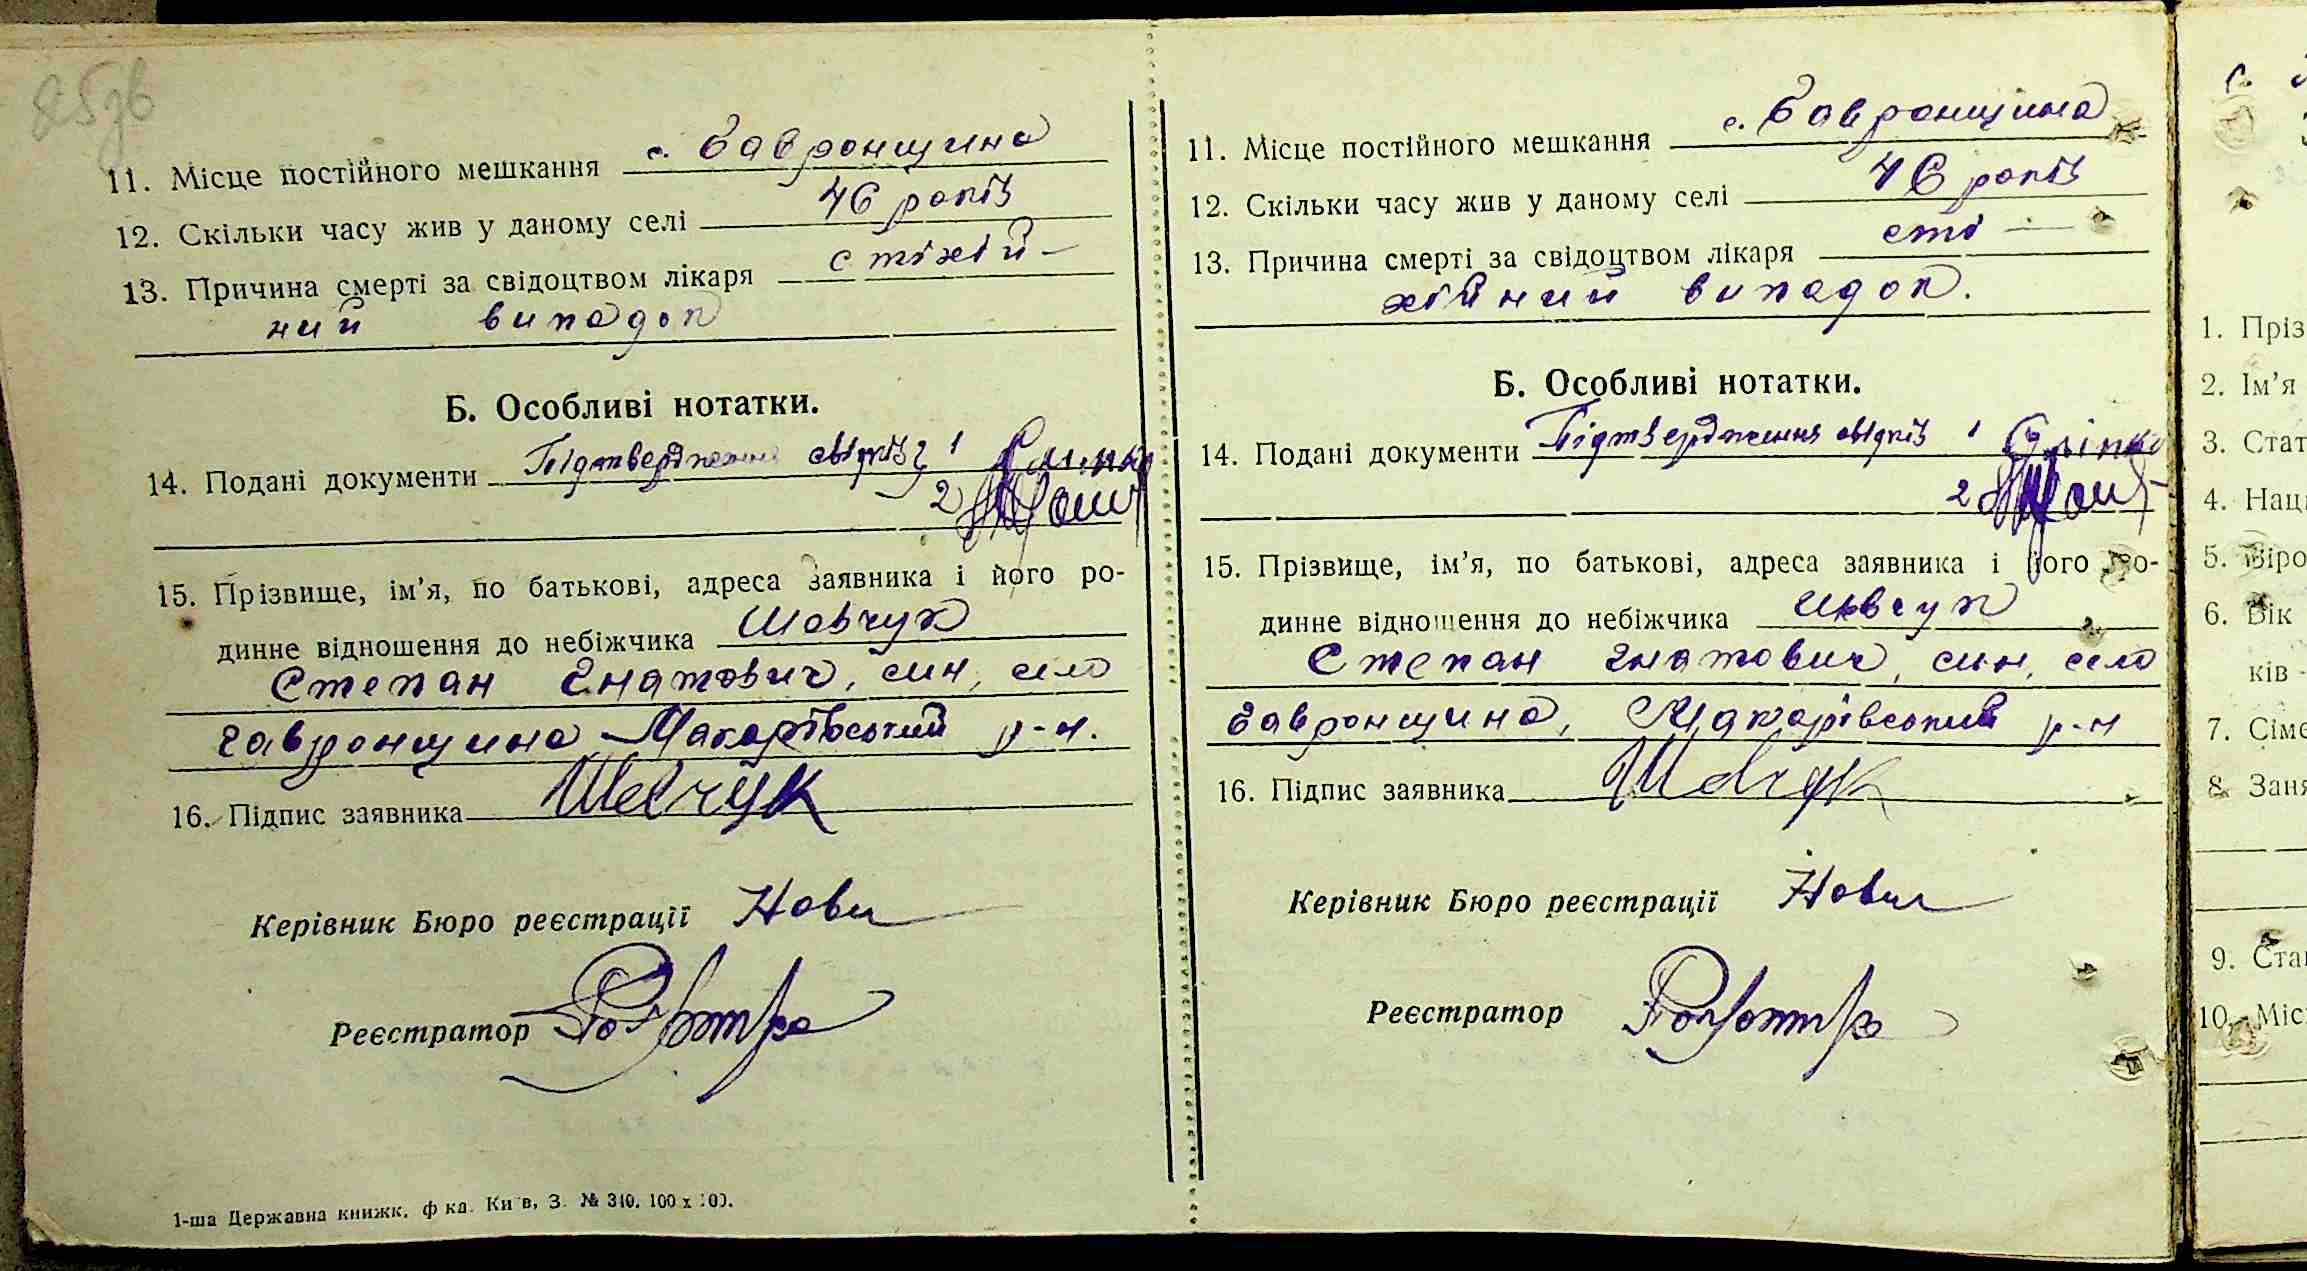 25зв
11. Місце постійного мешкання с. Гавронщина
12. Скільки часу жив у даному селі 46 років
13. Причина смерті за свідоцтвом лікаря стіхій-
ний випадок
Б. Особливі нотатки.
14. Подані документи Підтвердження свідків 1
2
15. Прізвище, ім’я, по батькові, адреса заявника і його ро-
динне відношення до небіжчика Шевчук
Степан Гнатович, син, село
Гавронщина Макарівський р-н.
16. Підпис заявника Шевчук
Керівник Бюро реєстрації Нови
Реєстратор
1-ша Державна книжк. ф ка. Київ, З. № 340. 100 x 100.
11. Місце постійного мешкання с. Гавронщина
12. Скільки часу жив у даному селі 46 років
13. Причина смерті за свідоцтвом лікаря сті-
хійний випадок.
Б. Особливі нотатки.
14. Подані документи Підтвердження свідків 1
2
15. Прізвище, ім’я, по батькові, адреса заявника і його ро-
динне відношення до небіжчика Шевчук
Степан Гнатович, син, село
Гавронщина, Макарівський р-н
16. Підпис заявника Шевчук
Керівник Бюро реєстрації Нови
Реєстратор
с.
1. Пріз
2. Ім’я
3. Стат
4. Наці
5. Віро
6. Вік
ків -
7. Сіме
8. Заня
9. Ста
10. Міс